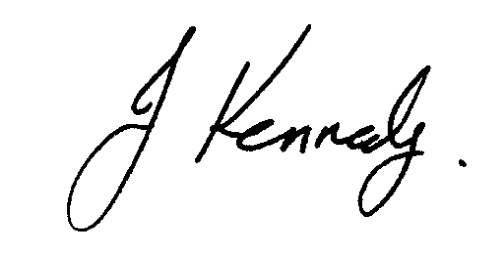 J Kennedy.